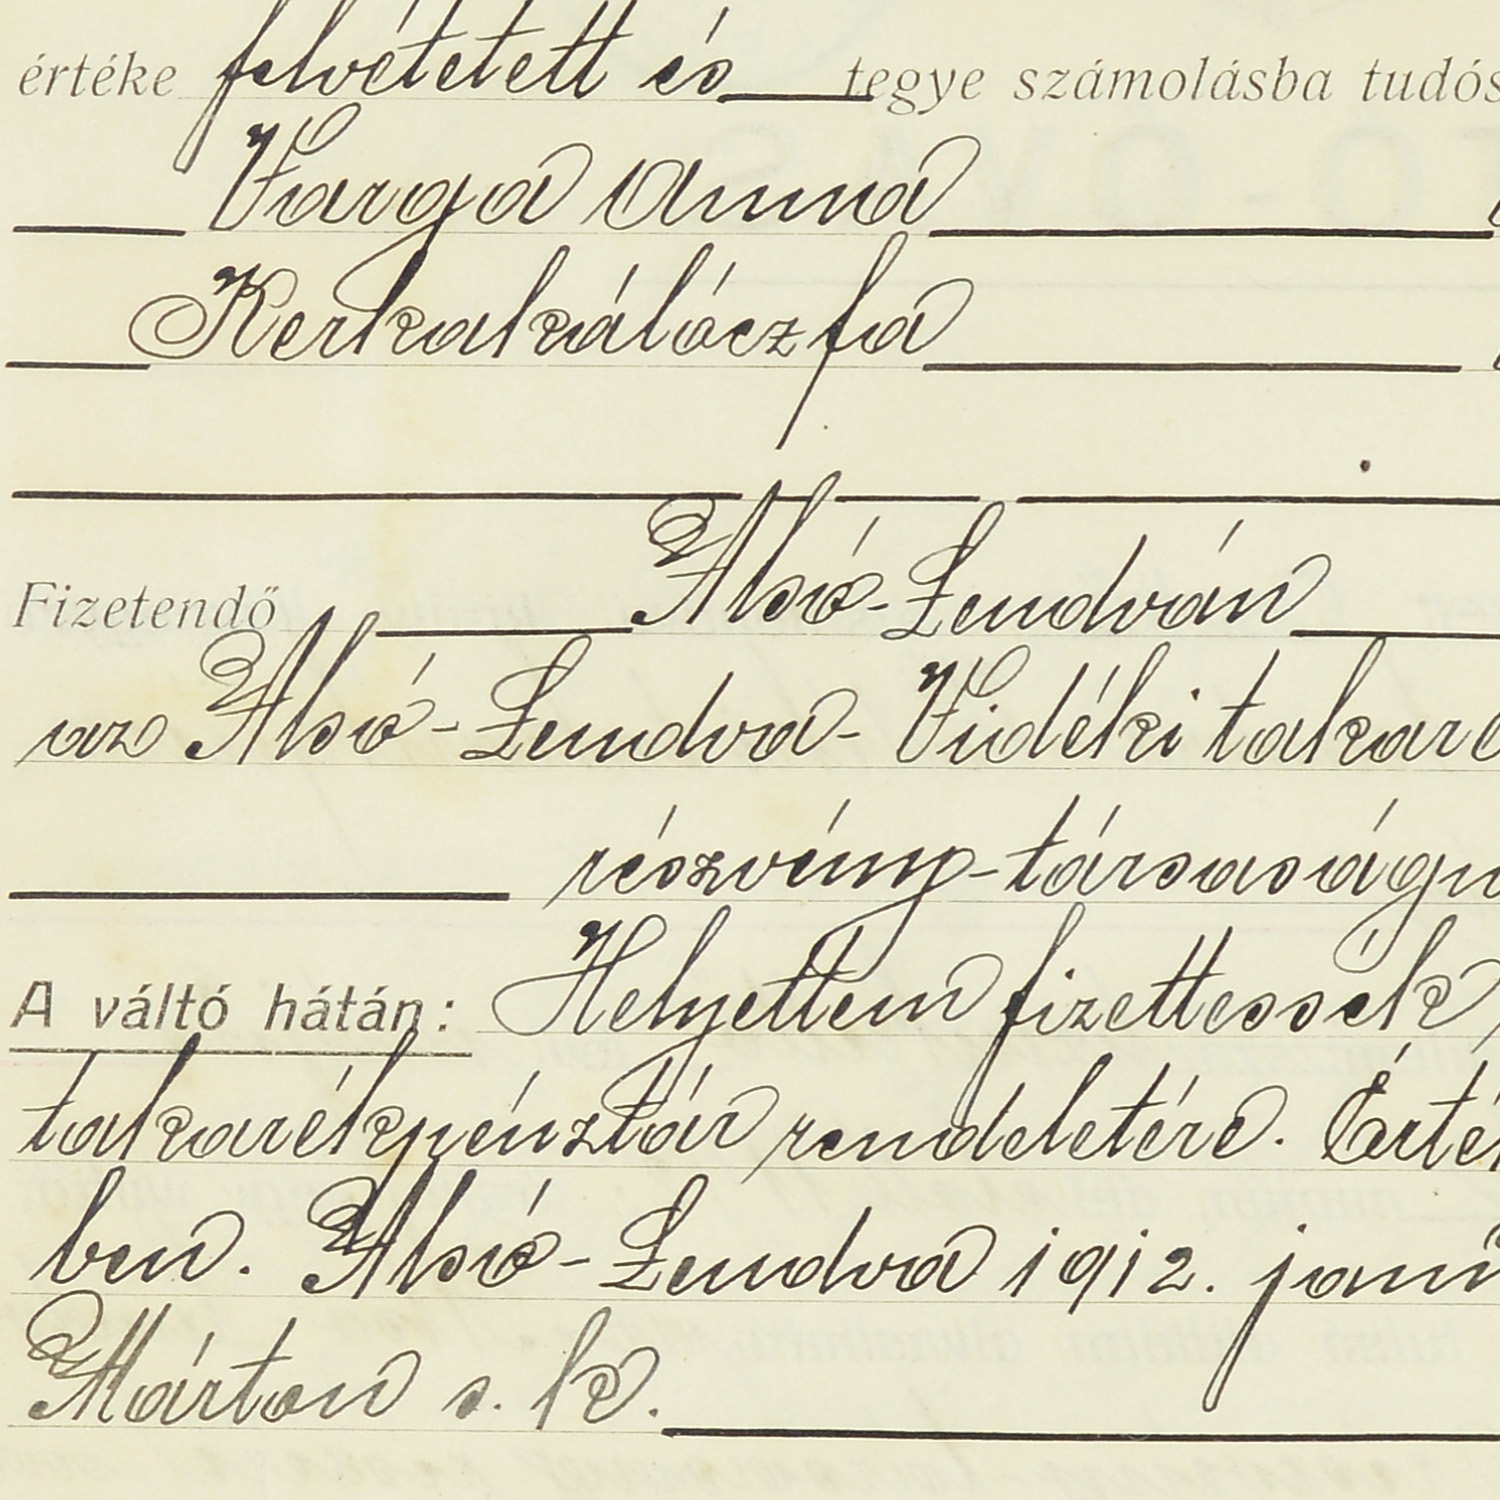 értéke felvétetett és tegye számolásba tudós
Varga Anna
Kerkakálóczfa
Fizetendő Alsó-Lendván
az Alsó-Lendva-Vidéki takaré
részvény-társaságn
A váltó hátán: Helyettem fizettessék
takarékpénztár rendeletére. Érték
ben. Alsó-Lendva 1912. janu
Márton s. k.